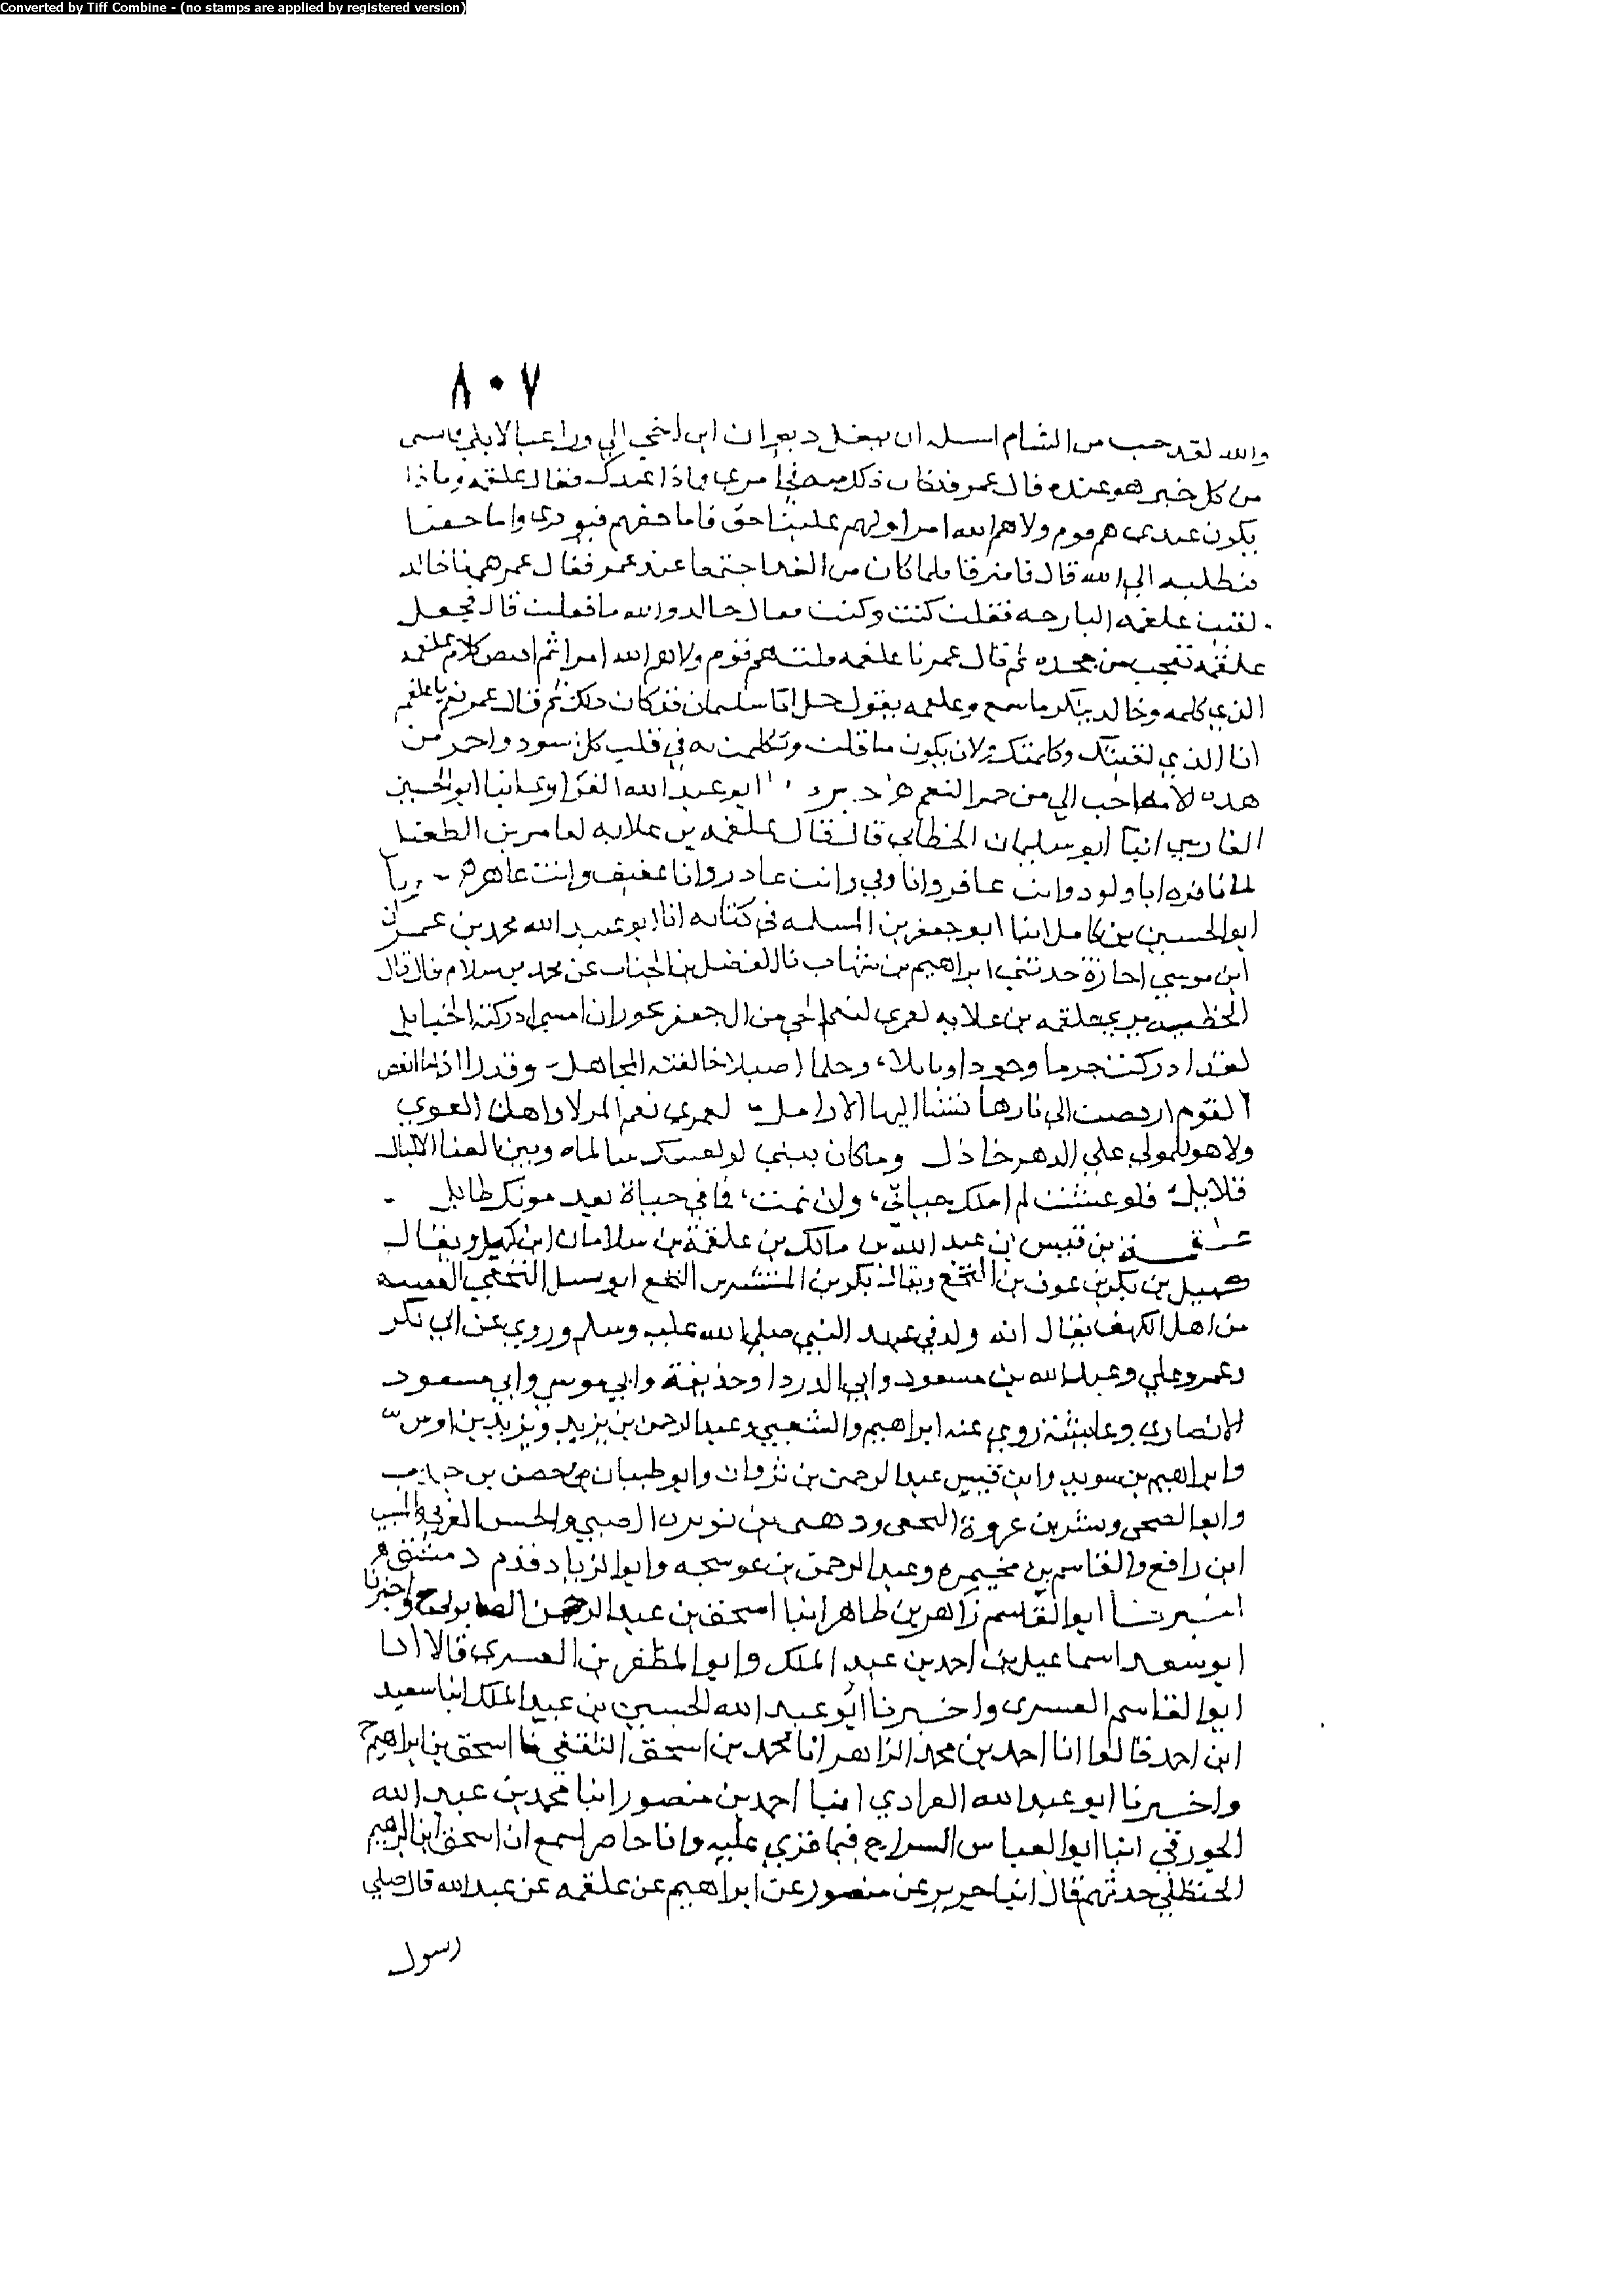 Converted by Tiff Combine - (no stamps are applied by registered version)
٨٠٧
والله لقد من الشام ان ابن الي
من كل خير هو عنده قال عمر في امري وماذا عندك فقال علقمه وماذا
يكون عندي هم قوم ولاهم الله امرا ولهم علينا حق فاما حقهم فنودي واما حقنا
فنطلبه الي الله قال فلما كان من الغد اجتمعا عند عمر فقال عمر خالد
لقيت علقمه البارحه فقلت كنت وكنت فقال خالد والله ما فعلت قال فجعل
علقمه تعجب من جحده ثم قال عمر يا علقمه قلت هم قوم ولاهم الله امرا ثم اقتص كلام علقمه
الذي كلمه وخالد ينكر ما سمع وعلقمه يقول حل ابا سليمان فقد كان ذلك ثم قال عمر نعم يا علقمه
انا الذي لقيتك وكلمتك لان يكون ما قلت وتكلمت به في قلب كل اسود واحمر من
هذه الامه احب الي من حمر النعم ابو عبد الله الفراوي انبا ابو الحسين
الفارسي انبا ابو سليمان الخطابي قال قال علقمه بن علاثه لعامر بن الطفيل
انا ولود وانت عاقر وانا وفي وانت غادر وانا عفيف وانت عاهر
ابو الحسين بن كامل انبا ابو جعفر بن المسلمه في كتابه انا ابو عبيد الله محمد بن عمران
ابن موسي اجازة حدثني ابراهيم بن شهاب نا الفضل بن الحباب عن محمد بن سلام قال قال
الحطيئه يرثي علقمه بن علاثه لعمري لنعم الحي من ال جعفر بحوران امسي ادركته الحبايل
لقد ادركت حزما وجودا ونايلا وحلما اصيلا خالفته المجاهل وقدرا اذا ما انفض
القوم الي نارها اليها الارامل لعمري نعم المر لا واهن القوي
ولا هو للمولي علي الدهر خاذل وما كان بيني لو لقيتك سالما وبين الغنا الا ليال
قلايل فلو عشت لم املك حياتي ولان تمت فما في حياة بعد موتك طايل
علقمة بن قيس بن عبد الله بن مالك بن علقمة بن سلامان ابن كهيل ويقال
كهيل بن بكر بن عوف بن النخع ويقال بكر بن المنتشر بن النخع ابو شبل النخعي الفقيه
من اهل الكوفه يقال انه ولد في عهد النبي صلي الله عليه وسلم وروي عن ابي بكر
وعمر وعلي وعبد الله بن مسعود وابي الدردا وحذيفة وابي موسي وابي مسعود
الانصاري وعايشة روي عنه ابراهيم والشعبي وعبد الرحمن بن يزيد ويزيد بن اوس
وابراهيم بن سويد وابن قيس عبد الرحمن بن ثروان وابو ظبيان حصين بن جندب
وابو الضحي وبشر بن عروة النخعي بن نويره الضبي والحسن العرني والمسيب
ابن رافع والقاسم بن مخيمره وعبد الرحمن بن عوسجه وابو الزناد قدم دمشق
اخبرنا ابو القاسم زاهر بن طاهر انبا اسحق بن عبد الرحمن الصابوني ح واخبرنا
ابو سعد اسماعيل بن احمد بن عبد الملك وابو المظفر بن القشيري قالا انا
ابو القاسم القشيري واخبرنا ابو عبد الله الحسين بن عبد الملك انبا سعيد
ابن احمد قالوا انا احمد بن محمد الزاهر انا محمد بن اسحق الثقفي نا اسحق بن ابراهيم ح
واخبرنا ابو عبد الله الفراوي انبا احمد بن منصور انبا محمد بن عبد الله
الجوزقي انبا ابو العباس السراج فيما قري عليه وانا حاضر اسمع ان اسحق ابن ابراهيم
الحنظلي حدثهم قال انبا جرير عن منصور عن ابراهيم عن علقمه عن عبد الله قال صلي
رسول